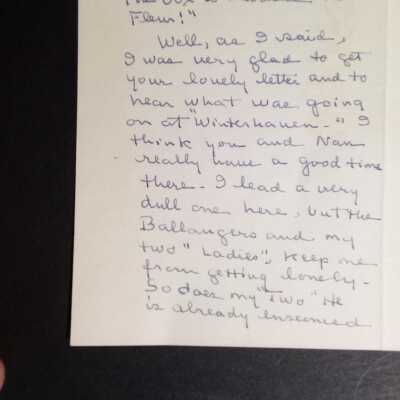 Fleur!"
Well, as I said,
I was very glad to get
your lovely letter and to
hear what was going
on at "Winterhaven-" I
think you and Nan
really have a good time
there - I lead a very
dull one here, but the
Ballangers and my
two "Ladies", keep me
from getting lonely -
So does my "Two" He
is already ensconced